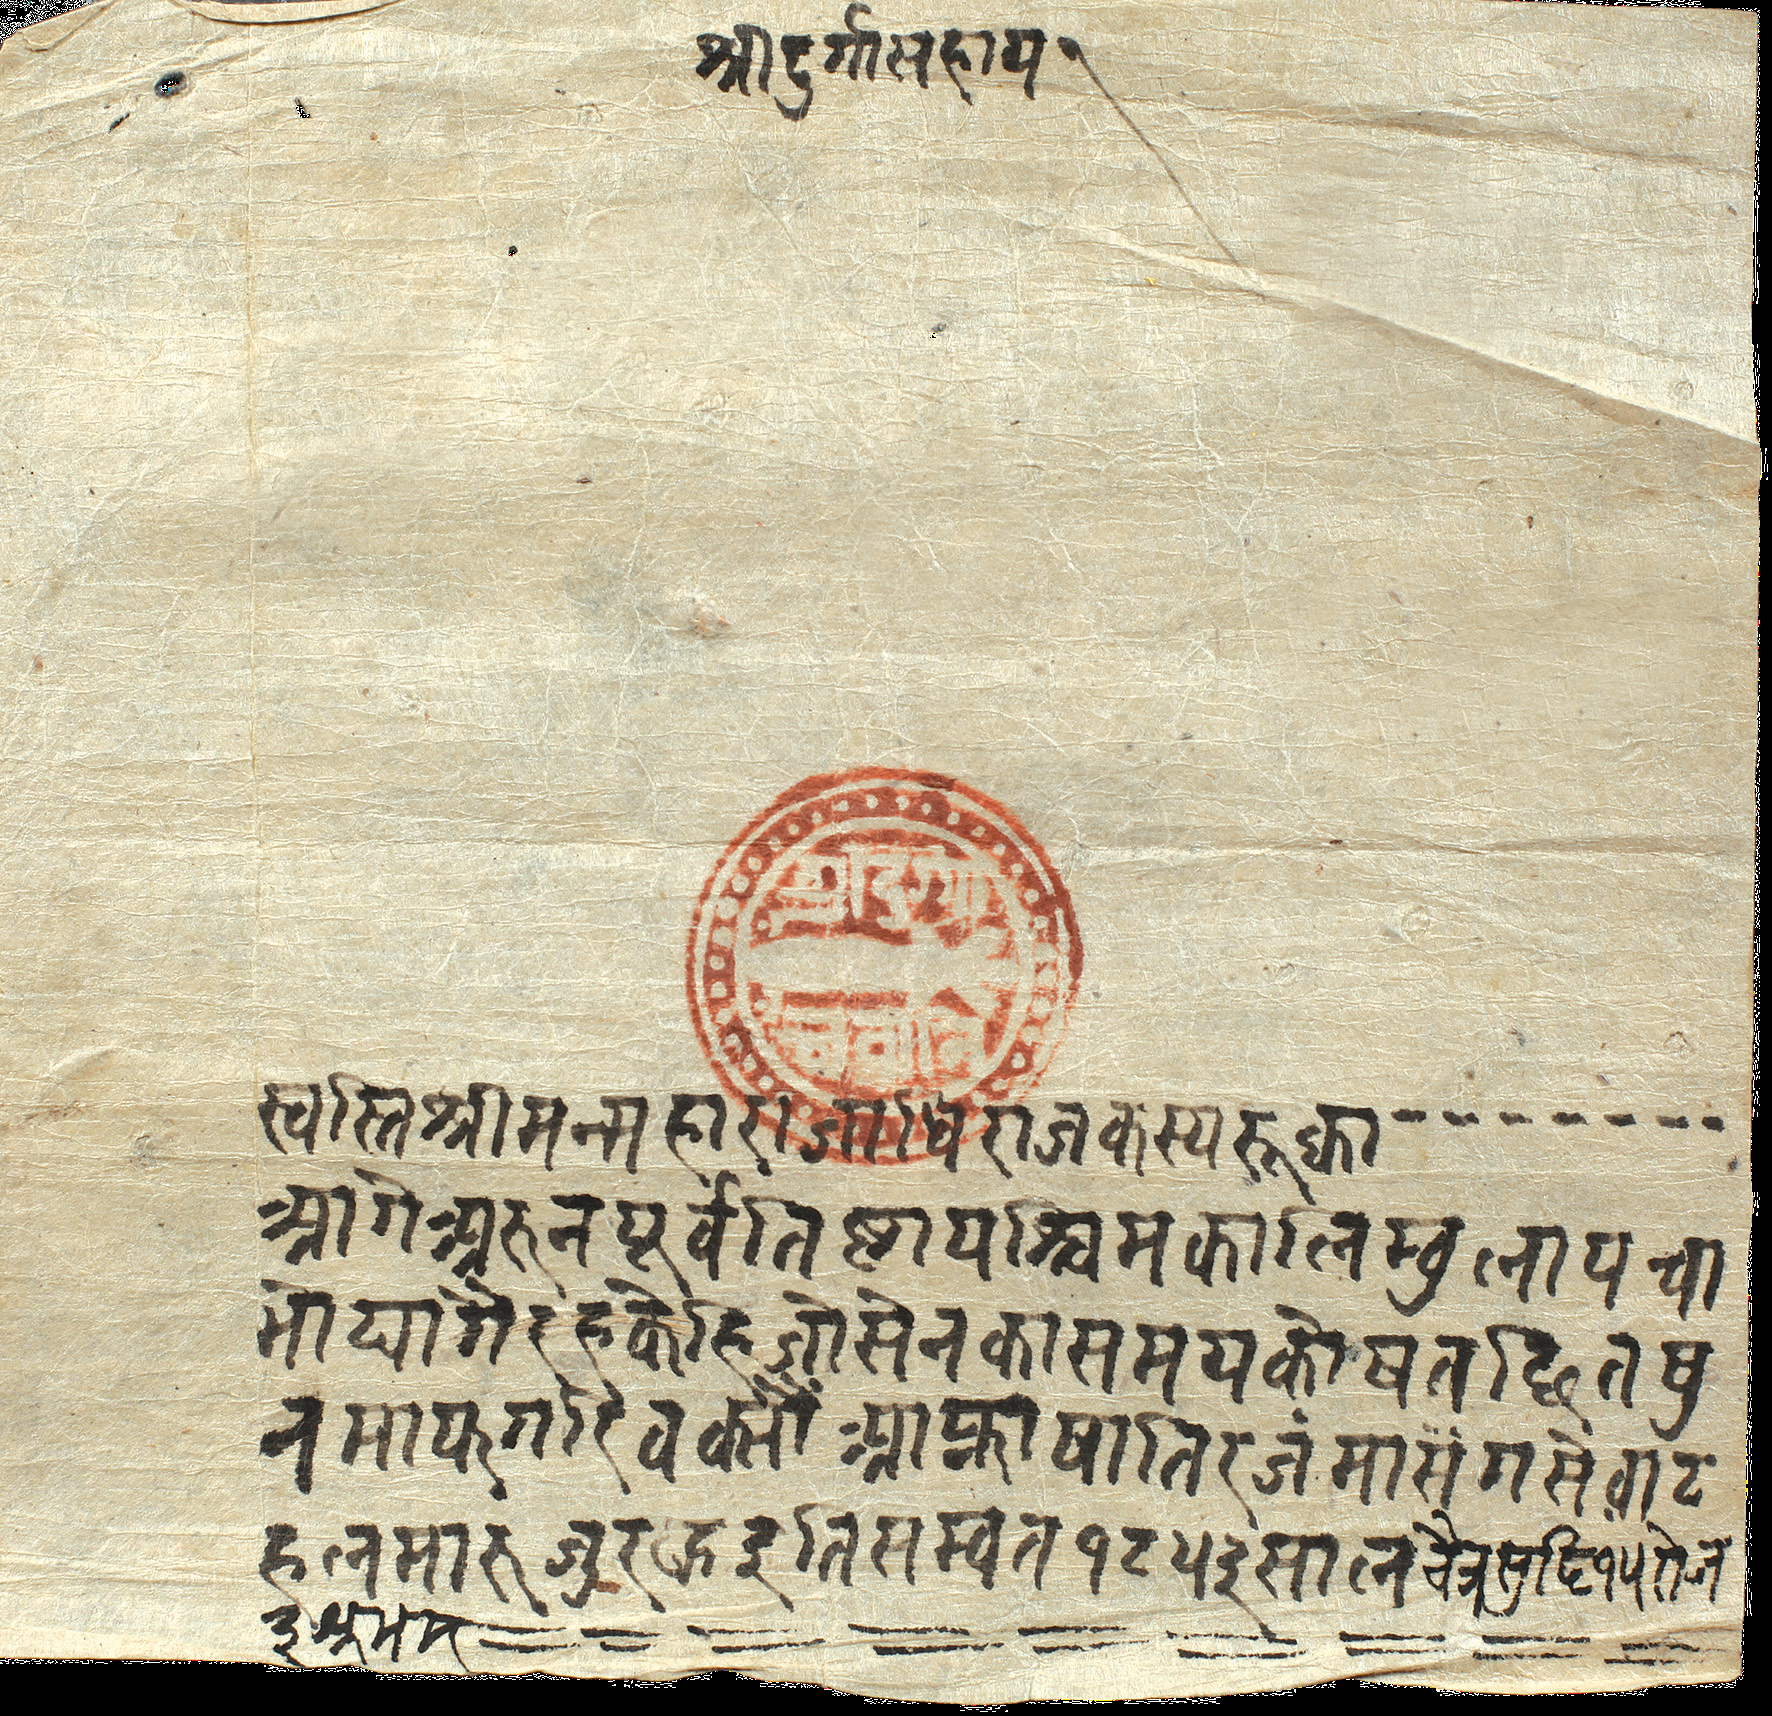 श्रीदुर्गासहाय
स्वस्तिश्रीमन्महाराजाधिराजकस्यरूक्का
आगेअरुनपूर्वतिष्टापश्चिमकालिम्वुलापचा
मोद्यागैरहकेहिजोसेनकासमयकोषतछितषु
नमाफगरिवक्सौं आफ्नाषातिरजंमासंगसेवाट
हलमारूजुरहइतिसम्वत१८५३सालचैत्रसुदि१५रोज
३शुभम्